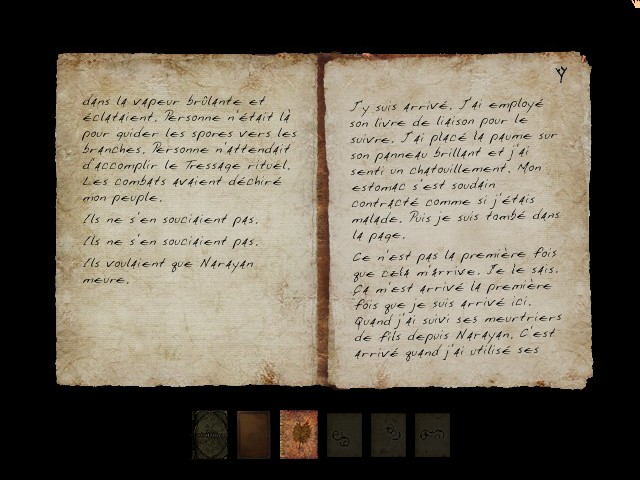 dans la vapeur brûlante et
éclataient. Personne n'était là
pour guider les spores vers les
branches. Personne n'attendait
d'accomplir le Tressage rituel.
Les combats avaient déchiré
mon peuple.
Ils ne s'en souciaient pas.
Ils ne s'en souciaient pas.
Ils voulaient que Narayan
meure.
J'y suis arrivé. J'ai employé
son livre de liaison pour le
suivre. J'ai placé la paume sur
son panneau brillant et j'ai
senti un chatouillement. Mon
estomac s'est soudain
contracté comme si j'étais
malade. Puis je suis tombé dans
la page.
Ce n'est pas la première fois
que cela m'arrive. Je le sais.
Ça m'est arrivé la première
fois que je suis arrivé ici.
Quand j'ai suivi ses meurtriers
de fils depuis Narayan. C'est
arrivé quand j'ai utilisé ses